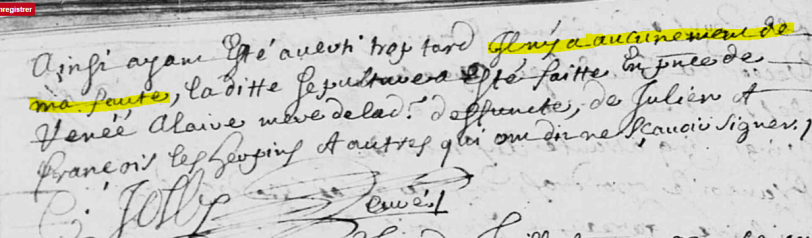 enregistrer
Ainsi ayant Esté averti trop tard Il n'y a aucunement de
ma faute, la ditte sepulture a Esté faitte En pnce de
Renéé Alaire mere de lad.e deffuncte, de Julien Et
François les Et autres qui ont dit ne sçavoir signer./
Jolly